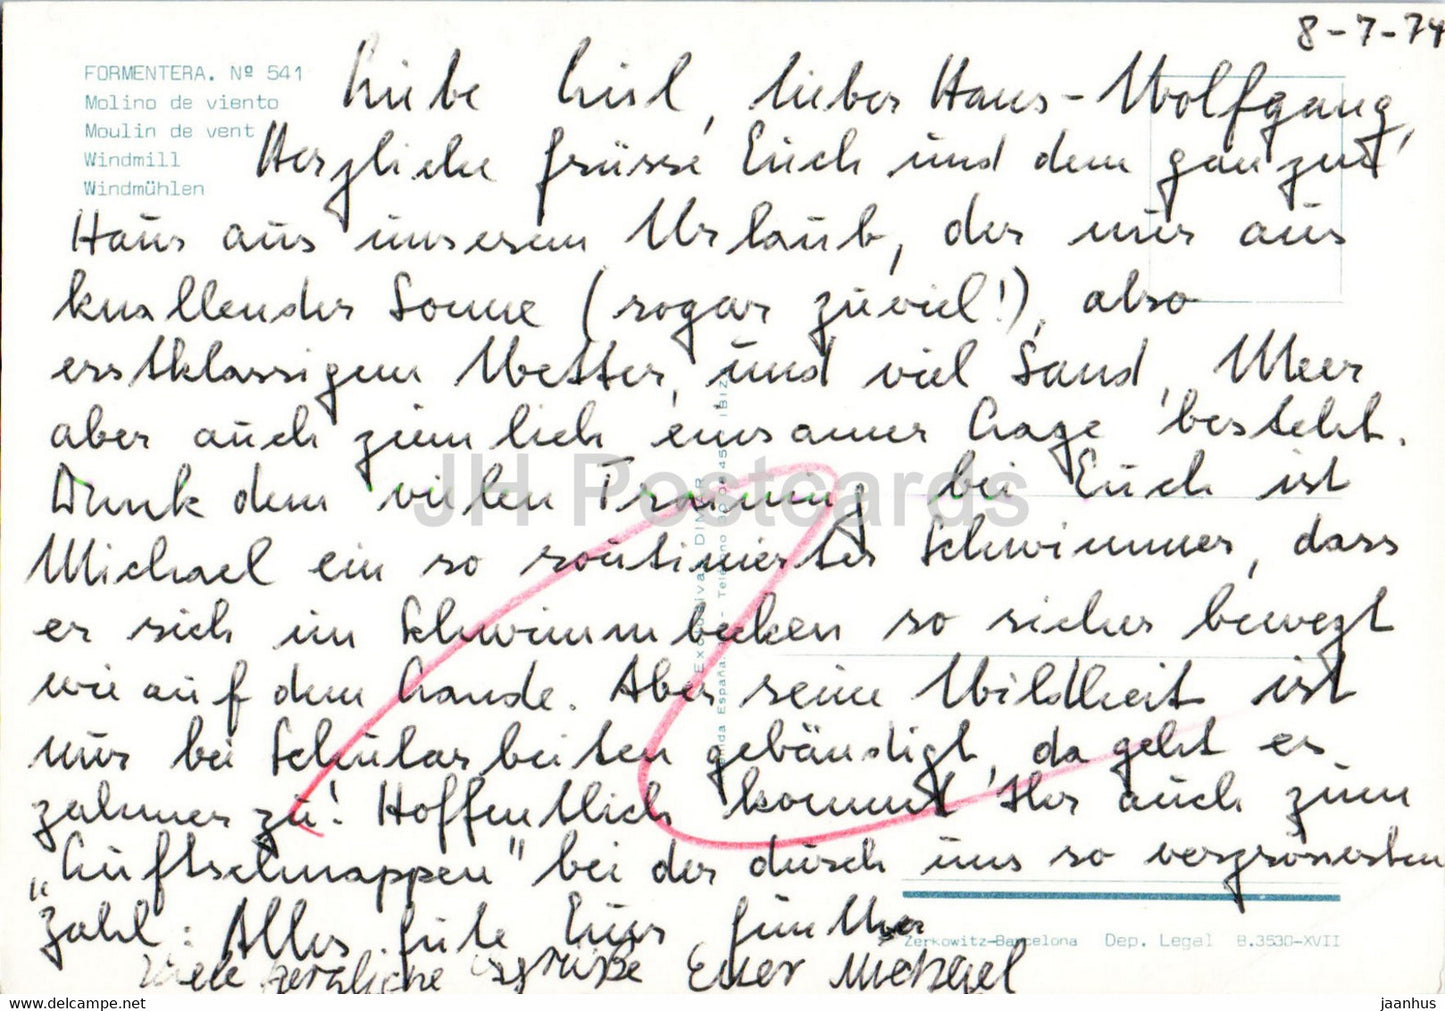 8-7-74
FORMENTERA. Nº 541
Molino de viento
Moulin de vent
Windmill
Windmühlen
Liebe Liesl, lieber Hans-Wolfgang,
Herzliche Grüsse Euch und dem ganzen
Haus aus unserem Urlaub, der nur aus
knallender Sonne (sogar zuviel!), also
erstklassigem Wetter, und viel Sand, Meer
aber auch ziemlich einsamer Lage besteht.
Dank dem vielen Training bei Euch ist
Michael ein so routinierter Schwimmer, dass
er sich im Schwimmbecken so sicher bewegt
wie auf dem Lande. Aber seine Wildheit ist
nur bei Schularbeiten gebändigt, da geht es
zahmer zu! Hoffentlich kommt Ihr auch zum
„Luftschnappen" bei der durch uns so vergrösserten
Zahl: Alles Gute Euer Günther
Viele herzliche Grüße Euer Michael
Exclusivas DIMER
Zerkowitz-Barcelona Dep. Legal B.3530-XVII
JH Postcards
www.delcampe.net
jaanhus